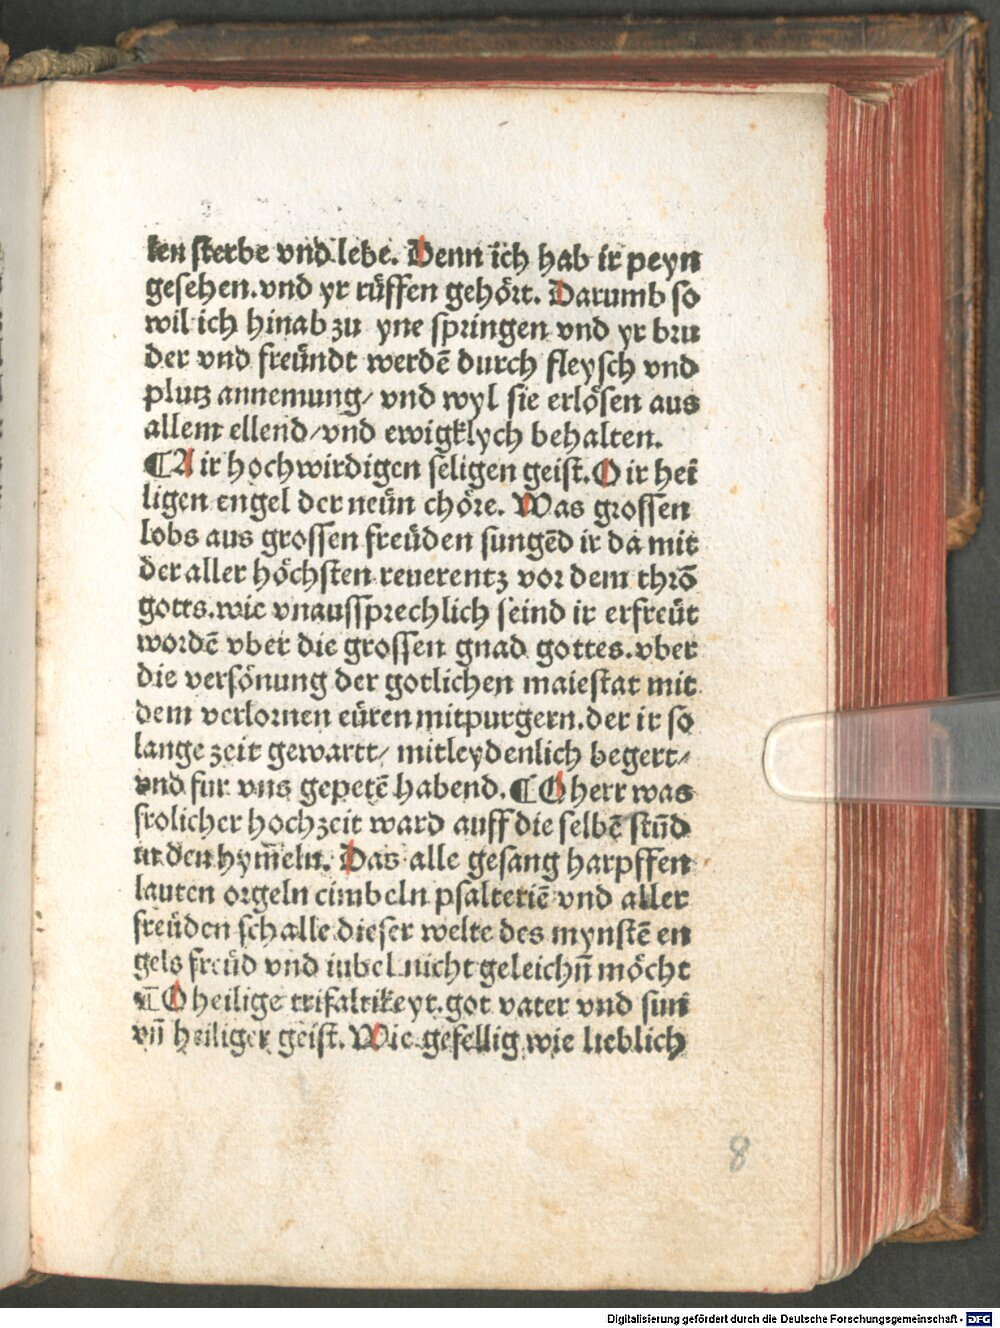 ken sterbe vnd lebe. Denn ich hab ir peyn
gesehen. vnd yr rüffen gehört. Darumb so
wil ich hinab zu yne springen vnd yr bru
der vnd freündt werdē durch fleysch vnd
plutz annemung/ vnd wyl sie erlösen aus
allem ellend/ vnd ewigklych behalten.
¶A ir hochwirdigen seligen geist. O ir hei
ligen engel der neün chöre. Was grossen
lobs aus grossen freüden sungēd ir da mit
der aller höchsten reuerentz vor dem thrō
gotts. wie vnaussprechlich seind ir erfreüt
wordē vber die grossen gnad gottes. vber
die versönung der gotlichen maiestat mit
dem verlornen eüren mitpurgern. der ir so
lange zeit gewartt/ mitleydenlich begert/
vnd fur vns gepetē habend. ¶O herr was
frolicher hochzeit ward auff die selbē stūd
in den hym̄eln. Das alle gesang harpffen
lauten orgeln cimbeln psalteriē vnd aller
freüden schalle dieser welte des mynstē en
gels freüd vnd iubel nicht geleichn̄ möcht
¶O heilige trifaltikeyt. got vater vnd sun
vn̄ heiliger geist. Wie gefellig wie lieblich
8
Digitalisierung gefördert durch die Deutsche Forschungsgemeinschaft - DFG